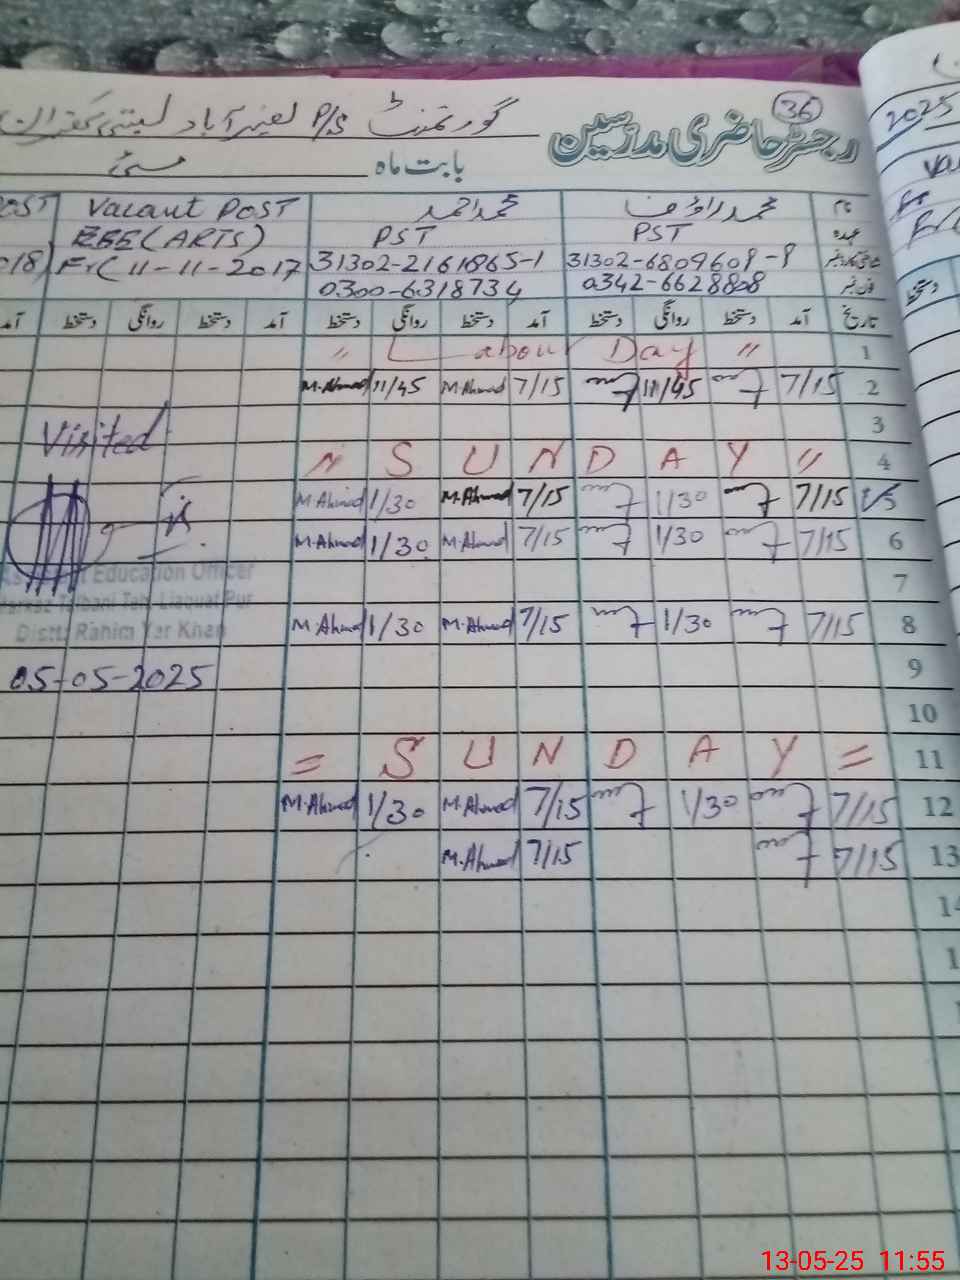 36
رجسٹر حاضری مدرسین
گورنمنٹ P/S نصیر آباد بستی
بابت ماہ مئی
نام محمد رؤف محمد احمد Vacant POST POST
عہدہ PST PST EEE (ARTS)
31302-6809609-9 31302-2161865-1 Fr( 11-11-2017 018)
فون نمبر 0342-6628808 0300-6318734
تاریخ آمد دستخط روانگی دستخط آمد دستخط روانگی دستخط آمد دستخط روانگی دستخط آمد
1 " Labour Day "
2 7/15 11/45 7/15 M.Ahmad 11/45 M.Ahmad
3
4 " S U N D A Y "
5 7/15 1/30 7/15 M.Ahmad 1/30 M.Ahmad
6 7/15 1/30 7/15 M.Ahmad 1/30 M.Ahmad
7
8 7/15 1/30 7/15 M.Ahmad 1/30 M.Ahmad
9
10
11 = S U N D A Y =
12 7/15 1/30 7/15 M.Ahmad 1/30 M.Ahmad
13 7/15 7/15 M.Ahmad
Visited
Assistant Education Officer
Markaz Talbani Teh. Liaquat Pur
Distt: Rahim Yar Khan
05-05-2025
2025
دستخط
13-05-25 11:55